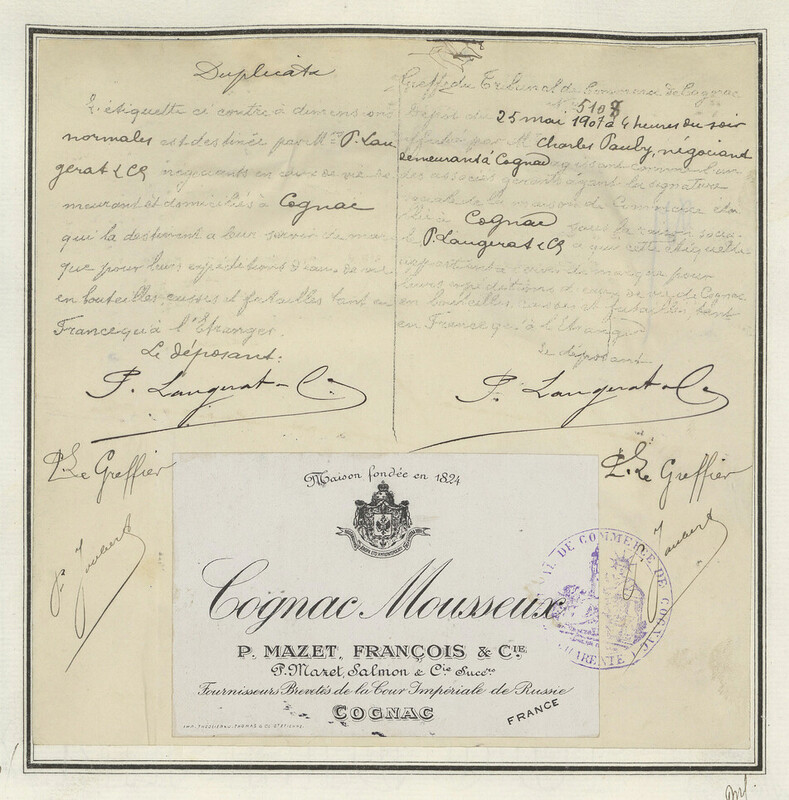 Duplicata
L'étiquette ci contre à dimensions
normales est destinée par Mrs P. Lau
gerat & Cie négociants en eaux de vie de
meurant et domiciliés à Cognac
qui la destinent a leur servir de mar
que pour leurs expéditions d'eau de vie
en bouteilles, caisses et futailles tant en
France qu'à l'Etranger.
Le déposant:
P. Laugerat & Co
Greffe du Tribunal de Commerce de Cognac
No 5108
Dépôt du 25 mai 1907 à 4 heures du soir
effectué par Mr Charles Pauly, négociant
demeurant à Cognac agissant comme l'un
des associés gérants ayant la signature
sociale de la maison de Commerce éta
blie à Cognac sous la raison socia
le P. Laugerat & Cie
a que cette étiquette
appartient à servir de marque pour
leurs expéditions d'eaux de vie de Cognac
en bouteilles, caisses et futailles, tant
en France qu'à l'Etranger
Le déposant
P. Laugerat & Co
P. Le Greffier
P. Joubert
P. Le Greffier
Joubert
Maison fondée en 1824
Cognac Mousseux
P. MAZET, FRANÇOIS & CIE
P. Mazet, Salmon & Cie Succrs
Fournisseurs Brevetés de la Cour Impériale de Russie
COGNAC
FRANCE
DE COMMERCE DE COGNAC
CHARENTE